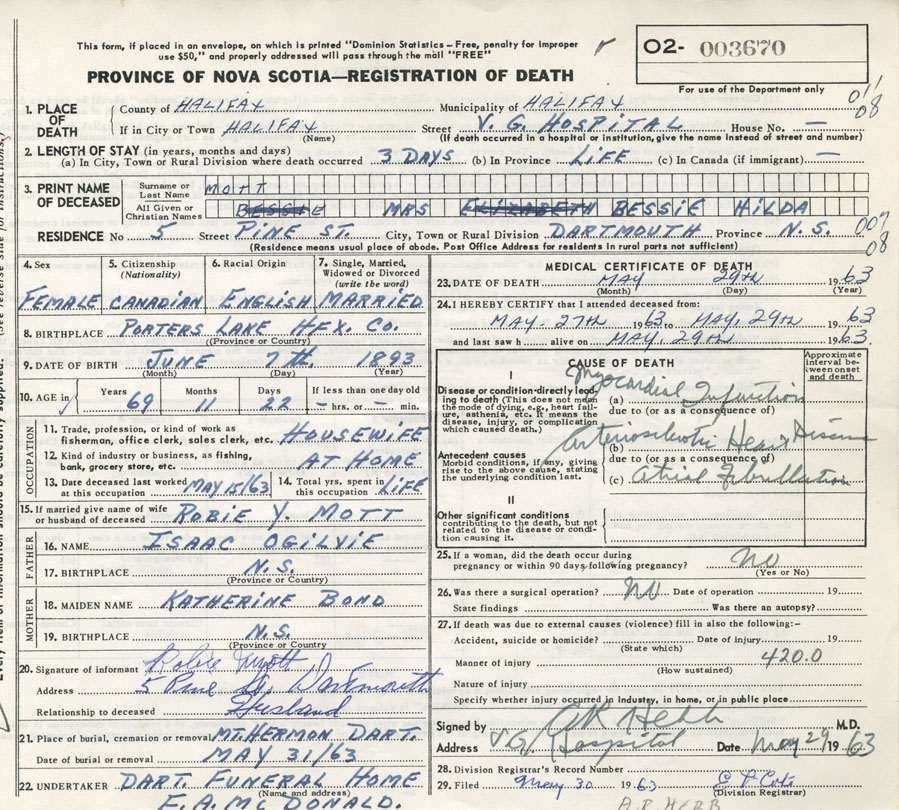 This form, if placed in an envelope, on which is printed "Dominion Statistics – Free, penalty for improper
use $50," and properly addressed will pass through the mail "FREE"
PROVINCE OF NOVA SCOTIA—REGISTRATION OF DEATH
O2- 003670
For use of the Department only
011
08
1. PLACE OF DEATH
County of HALIFAX Municipality of HALIFAX
If in City or Town HALIFAX Street V. G. HOSPITAL House No. —
(Name) (If death occurred in a hospital or institution, give the name instead of street and number)
2. LENGTH OF STAY (in years, months and days)
(a) In City, Town or Rural Division where death occurred 3 DAYS (b) In Province LIFE (c) In Canada (if immigrant) —
3. PRINT NAME OF DECEASED
Surname or Last Name MOTT
All Given or Christian Names BESSIE MRS ELIZABETH BESSIE HILDA
RESIDENCE No 5 Street PINE ST. City, Town or Rural Division DARTMOUTH Province N. S.
(Residence means usual place of abode. Post Office Address for residents in rural parts not sufficient)
007
08
4. Sex FEMALE
5. Citizenship (Nationality) CANADIAN
6. Racial Origin ENGLISH
7. Single, Married, Widowed or Divorced (write the word) MARRIED
8. BIRTHPLACE PORTERS LAKE HFX. CO.
(Province or Country)
9. DATE OF BIRTH JUNE 7TH. 1893
(Month) (Day) (Year)
10. AGE in Years 69 Months 11 Days 22 If less than one day old – hrs. or – min.
OCCUPATION
11. Trade, profession, or kind of work as fisherman, office clerk, sales clerk, etc. HOUSEWIFE
12. Kind of industry or business, as fishing, bank, grocery store, etc. AT HOME
13. Date deceased last worked at this occupation MAY 15/63 14. Total yrs. spent in this occupation LIFE
15. If married give name of wife or husband of deceased ROBIE Y. MOTT
FATHER
16. NAME ISAAC OGILVIE
17. BIRTHPLACE N.S.
(Province or Country)
MOTHER
18. MAIDEN NAME KATHERINE BOND
19. BIRTHPLACE N.S.
(Province or Country)
20. Signature of informant Robie Mott
Address 5 Pine St, Dartmouth
Relationship to deceased Husband
21. Place of burial, cremation or removal MT. HERMON DART.
Date of burial or removal MAY 31/63
22. UNDERTAKER DART. FUNERAL HOME
(Name and address)
E. A. MC DONALD.
MEDICAL CERTIFICATE OF DEATH
23. DATE OF DEATH MAY 29TH 1963
(Month) (Day) (Year)
24. I HEREBY CERTIFY that I attended deceased from:
MAY- 27TH 1963 to MAY, 29TH 1963
and last saw h alive on MAY, 29TH 1963.
CAUSE OF DEATH
Approximate interval between onset and death
I
Disease or condition directly leading to death (This does not mean the mode of dying, e.g., heart failure, asthenia, etc. It means the disease, injury, or complication which caused death.)
(a) Myocardial Infarction
due to (or as a consequence of)
Antecedent causes
Morbid conditions, if any, giving rise to the above cause, stating the underlying condition last.
(b) Arteriosclerotic Heart Disease
due to (or as a consequence of)
(c) Atrial Fibrillation
II
Other significant conditions
contributing to the death, but not related to the disease or condition causing it.
25. If a woman, did the death occur during pregnancy or within 90 days following pregnancy? No
(Yes or No)
26. Was there a surgical operation? No Date of operation 19
State findings Was there an autopsy?
27. If death was due to external causes (violence) fill in also the following:–
Accident, suicide or homicide? Date of injury 19
(State which)
Manner of injury 420.0
(How sustained)
Nature of injury
Specify whether injury occurred in Industry, in home, or in public place
Signed by A R Hebb M.D.
Address V.G. Hospital Date May 29 1963
28. Division Registrar's Record Number
29. Filed May 30 1963
(Division Registrar)
A.R. HEBB